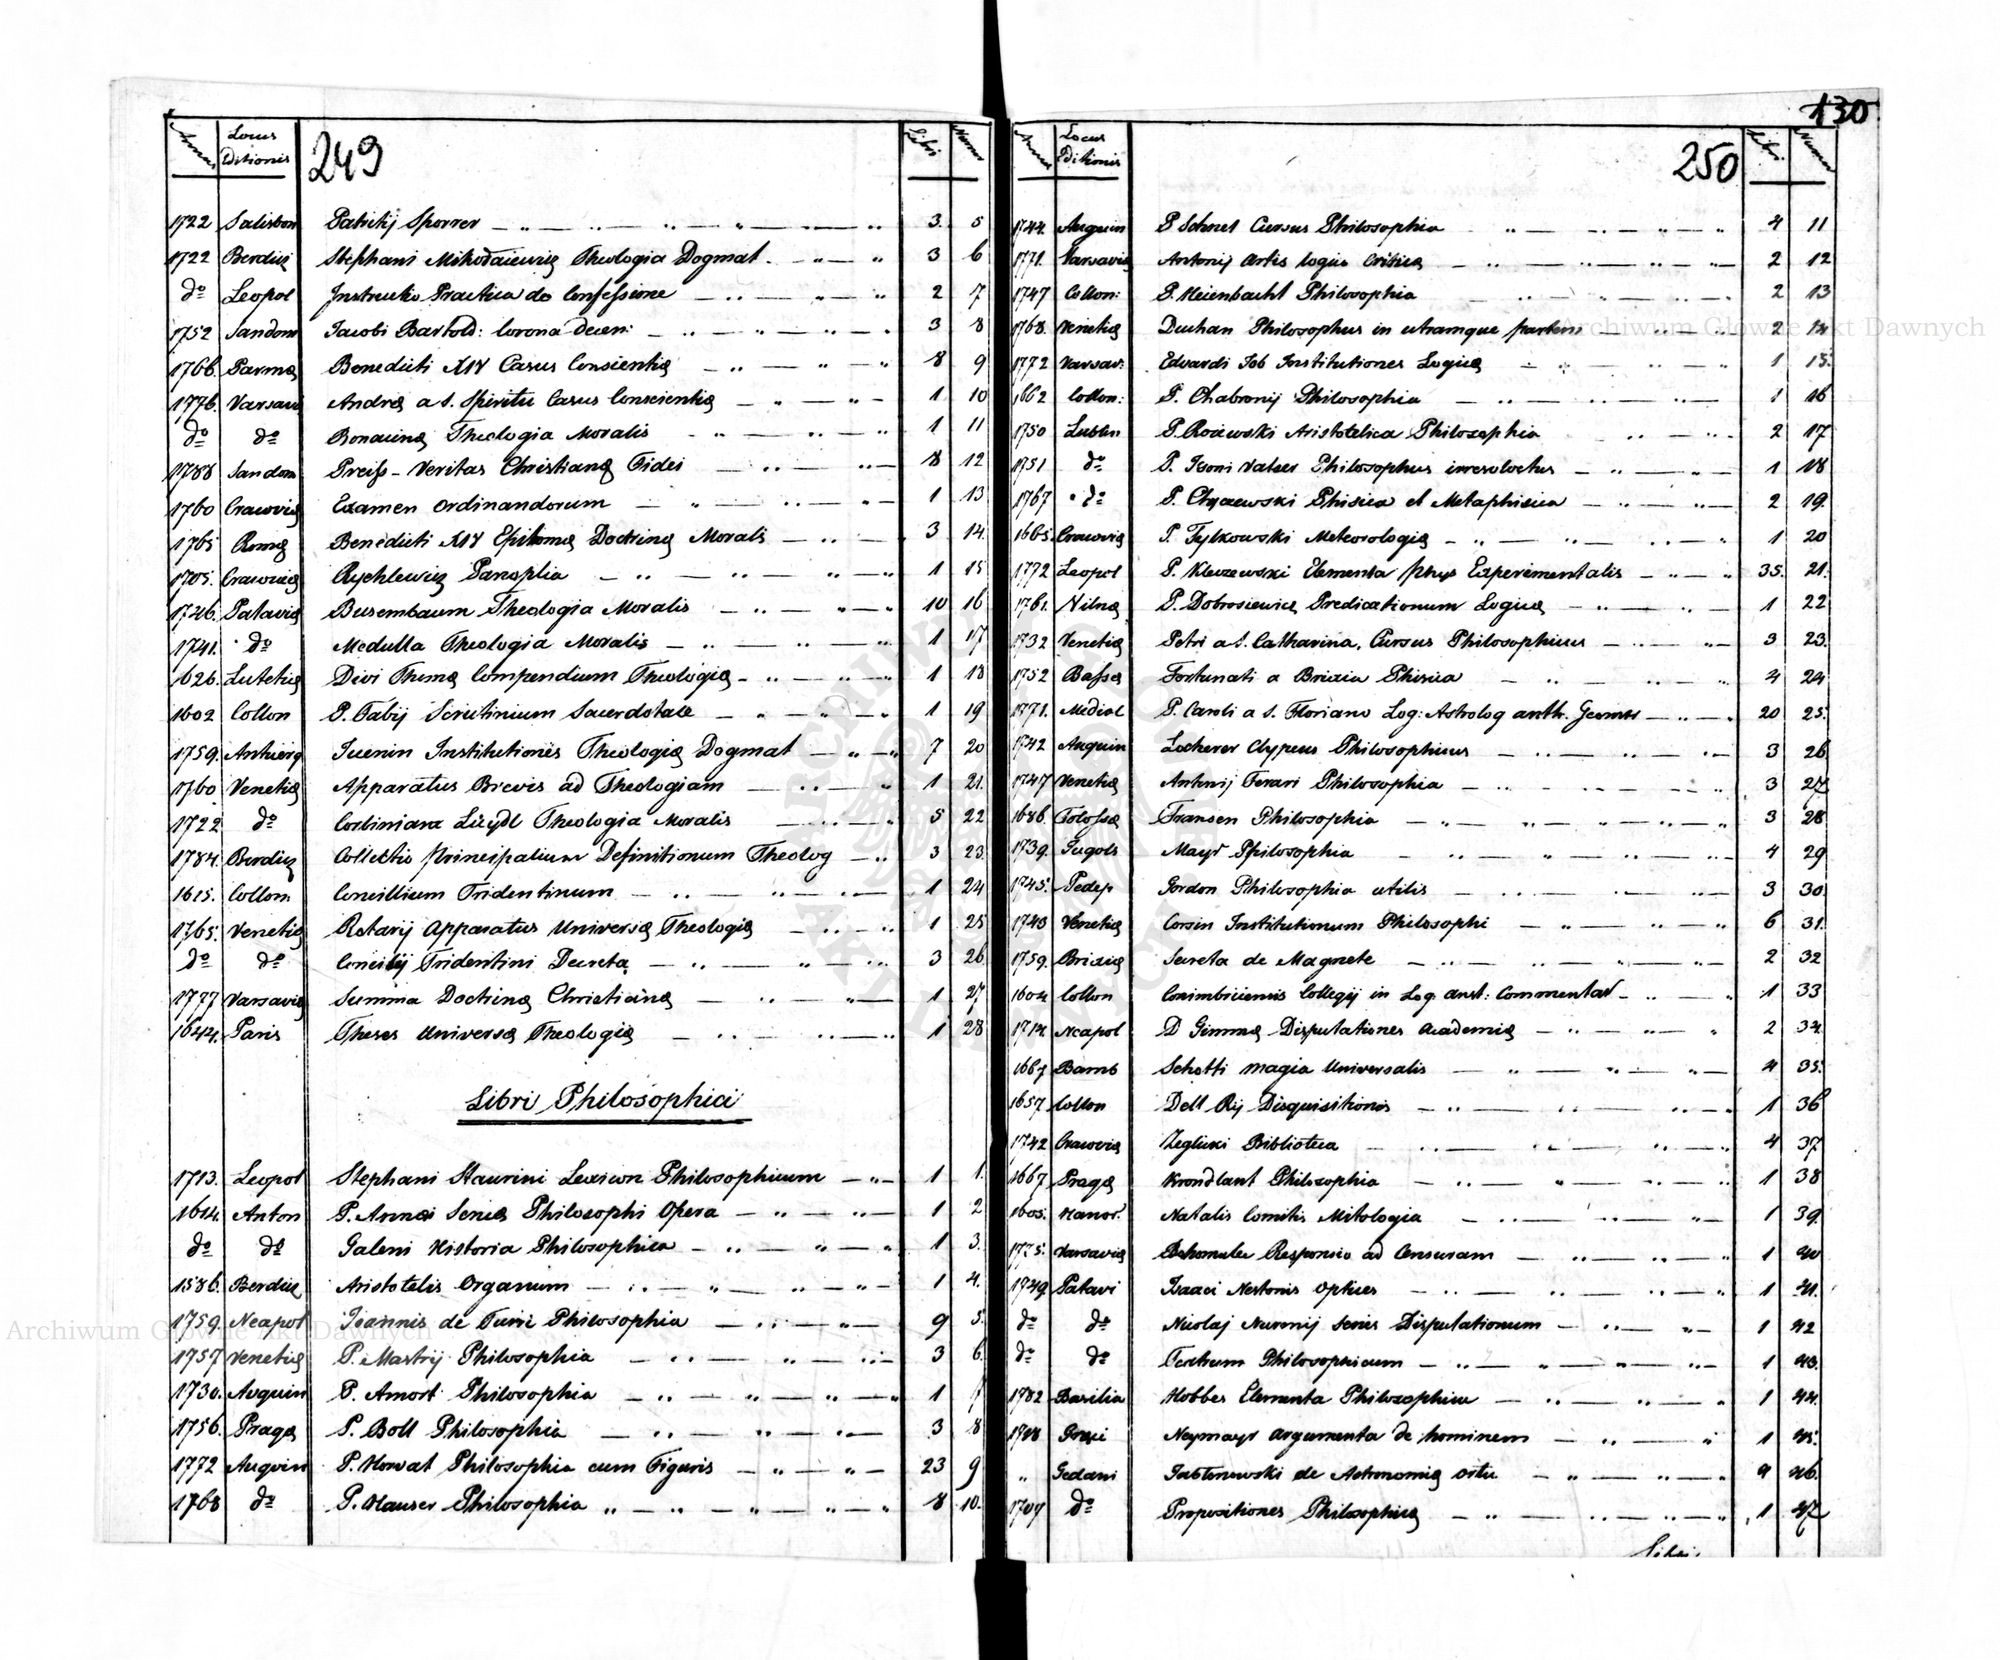 130
Annus Locus Editionis 249 Libri Numer
1722 Salisbon Patritij Sporrer 3. 5
1722 Berdicz Stephani Mikodaiewicz Theologia Dogmat. 3 6
do Leopol Instructio Practica do Confessione 2 7
1752 Sandom Jacobi Bartold: Corona decen: 3 8
1766. Parma Benedicti XIV Casus Conscientiæ 8 9
1776. Varsavi Andreæ a S. Spiritu Casus Conscientiæ 1 10
do do Bonacinæ Theologia Moralis 1 11
1788 Sandom Preiss - Veritas Christianæ Fidei 8 12
1760 Cracoviæ Examen ordinandorum 1 13
1765 Romæ Benedicti XIV Epitomæ Doctrinæ Moralis 3 14.
1705. Cracoviæ Rychlewicz Panoplia 1 15
1746. Pataviæ Busembaum Theologia Moralis 10 16
1741. do Medulla Theologia Moralis 1 17
1626. Lutetiæ Divi Thomæ Compendium Theologiæ 1 18
1602 Collon P. Fabij Scrutinium Sacerdotale 1 19
1759. Antwerp Juenin Institutiones Theologiæ Dogmat 7 20
1760 Venetiæ Apparatus Brevis ad Theologiam 1 21.
1722 do Corbiniana Lüydl Theologia Moralis 5 22
1784. Berdicz Collectio principalium Definitionum Theolog 3 23.
1615. Collon Concillium Tridentinum 1 24
1765. Venetiæ Rotarij Apparatus Universæ Theologiæ 1 25
do do Concilij Tridentini Decreta 3 26
1777 Varsaviæ Summa Doctrinæ Christianæ 1 27
1644. Paris Theses Universæ Theologiæ 1 28
Libri Philosophici
1713. Leopol Stephani Staurini Lexicon Philosophicum 1 1.
1614. Anton P. Annæi Senecæ Philosophi Opera 1 2
do do Galeni Historia Philosophica 1 3.
1586. Berdicz Aristotelis Organum 1 4.
1759. Neapol Joannis de Turri Philosophia 9 5.
1757 Venetiæ P. Mastrij Philosophia 3 6.
1730. Auguin P. Amort Philosophia 1 7
1756. Pragæ P. Boll Philosophia 3 8
1772 Auguin P. Horvat Philosophia cum Figuris 23 9
1768 do P. Hauser Philosophia 8 10.
Annus Locus Editionis 250 Libri Numer
1744. Auguin P Schnel Cursus Philosophia 4 11
1771. Varsaviæ Antonij Artis logicæ Critica 2 12
1747 Collon: P. Meienbacht Philosophia 2 13
1768. Venetiæ Duchan Philosophus in utramque partem 2 14
1772 Varsav: Edvardi Job Institutiones Logicæ 1 15.
1662 Collon: P. Chabronij Philosophia 1 16
1750 Lublin P. Rozewski Aristotelica Philosophia 2 17
1751 do P. Isoni Valser Philosophus irresolutus 1 18
1767 do P. Chyczewski Phisica et Metaphisica 2 19.
1665. Cracoviæ P. Tylkowski Meteorologia 1 20
1772 Leopol P. Kleczewski Elementa phys Experimentalis 35. 21.
1761. Vilnæ P. Dobrosiewicz Predicationum Logicæ 1 22
1732 Venetiæ Petri a S. Catharina, Cursus Philosophicus 3 23.
1752 Bassæ Fortunati a Brixia Phisica 4 24
1771. Mediol P. Caroli a S. Floriano Log: Astrolog anth. Geomtr 20 25.
1742 Auguin Locherer Clypeus Philosophicus 3 26
1747 Venetiæ Antonij Ferari Philosophia 3 27
1686. Tolossæ Fransen Philosophia 3 28
1739. Jugols Mayr Philosophia 4 29
1745. Pedep Gordon Philosophia utilis 3 30
1743 Venetiæ Corsin Institutionum Philosophi 6 31.
1759. Brixiæ Secreta de Magnete 2 32
1604 Collon Conimbricensis Collegij in Log. arist: Commentar 1 33
1714. Neapol D Gimmæ Disputationes Academiæ 2 34.
1667 Bamb Schotti magia Universalis 4 35.
1657. Collon Dell Rij Disquisitionis 1 36
1742 Cracoviæ Zegliuxi Biblioteca 4 37
1667 Pragæ Krondlant Philosophia 1 38
1605. Hanov. Natalis Comitis Mitologia 1 39
1775. Varsaviæ Responsio ad Censuram 1 40
1749. Patavi Isaaci Nestonis optices 1 41.
do do Nicolaj Nurmij Series Disputationum 1 42
do do Philosophicum 1 43.
1782 Basilia Hobbes Elementa Philosophica 1 44.
Neymayr argumenta de hominem 1 45.
„ Gedani Jabłonowski de Astronomiæ ortu 9 46.
1707 do Propositiones Philosophicæ 1 47
Libri
Archiwum Główne Akt Dawnych
Archiwum Główne Akt Dawnych